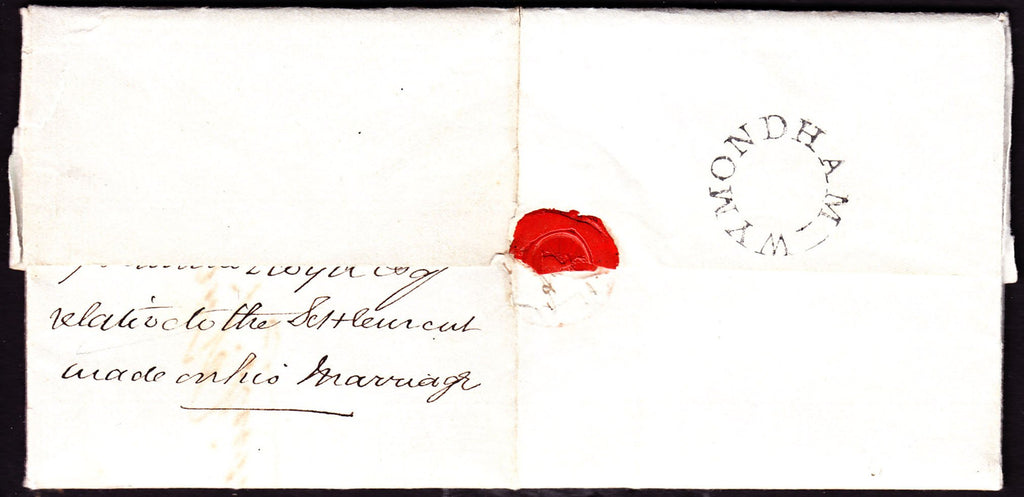 WYMONDHAM
relative to the Settlement
made on his Marriage